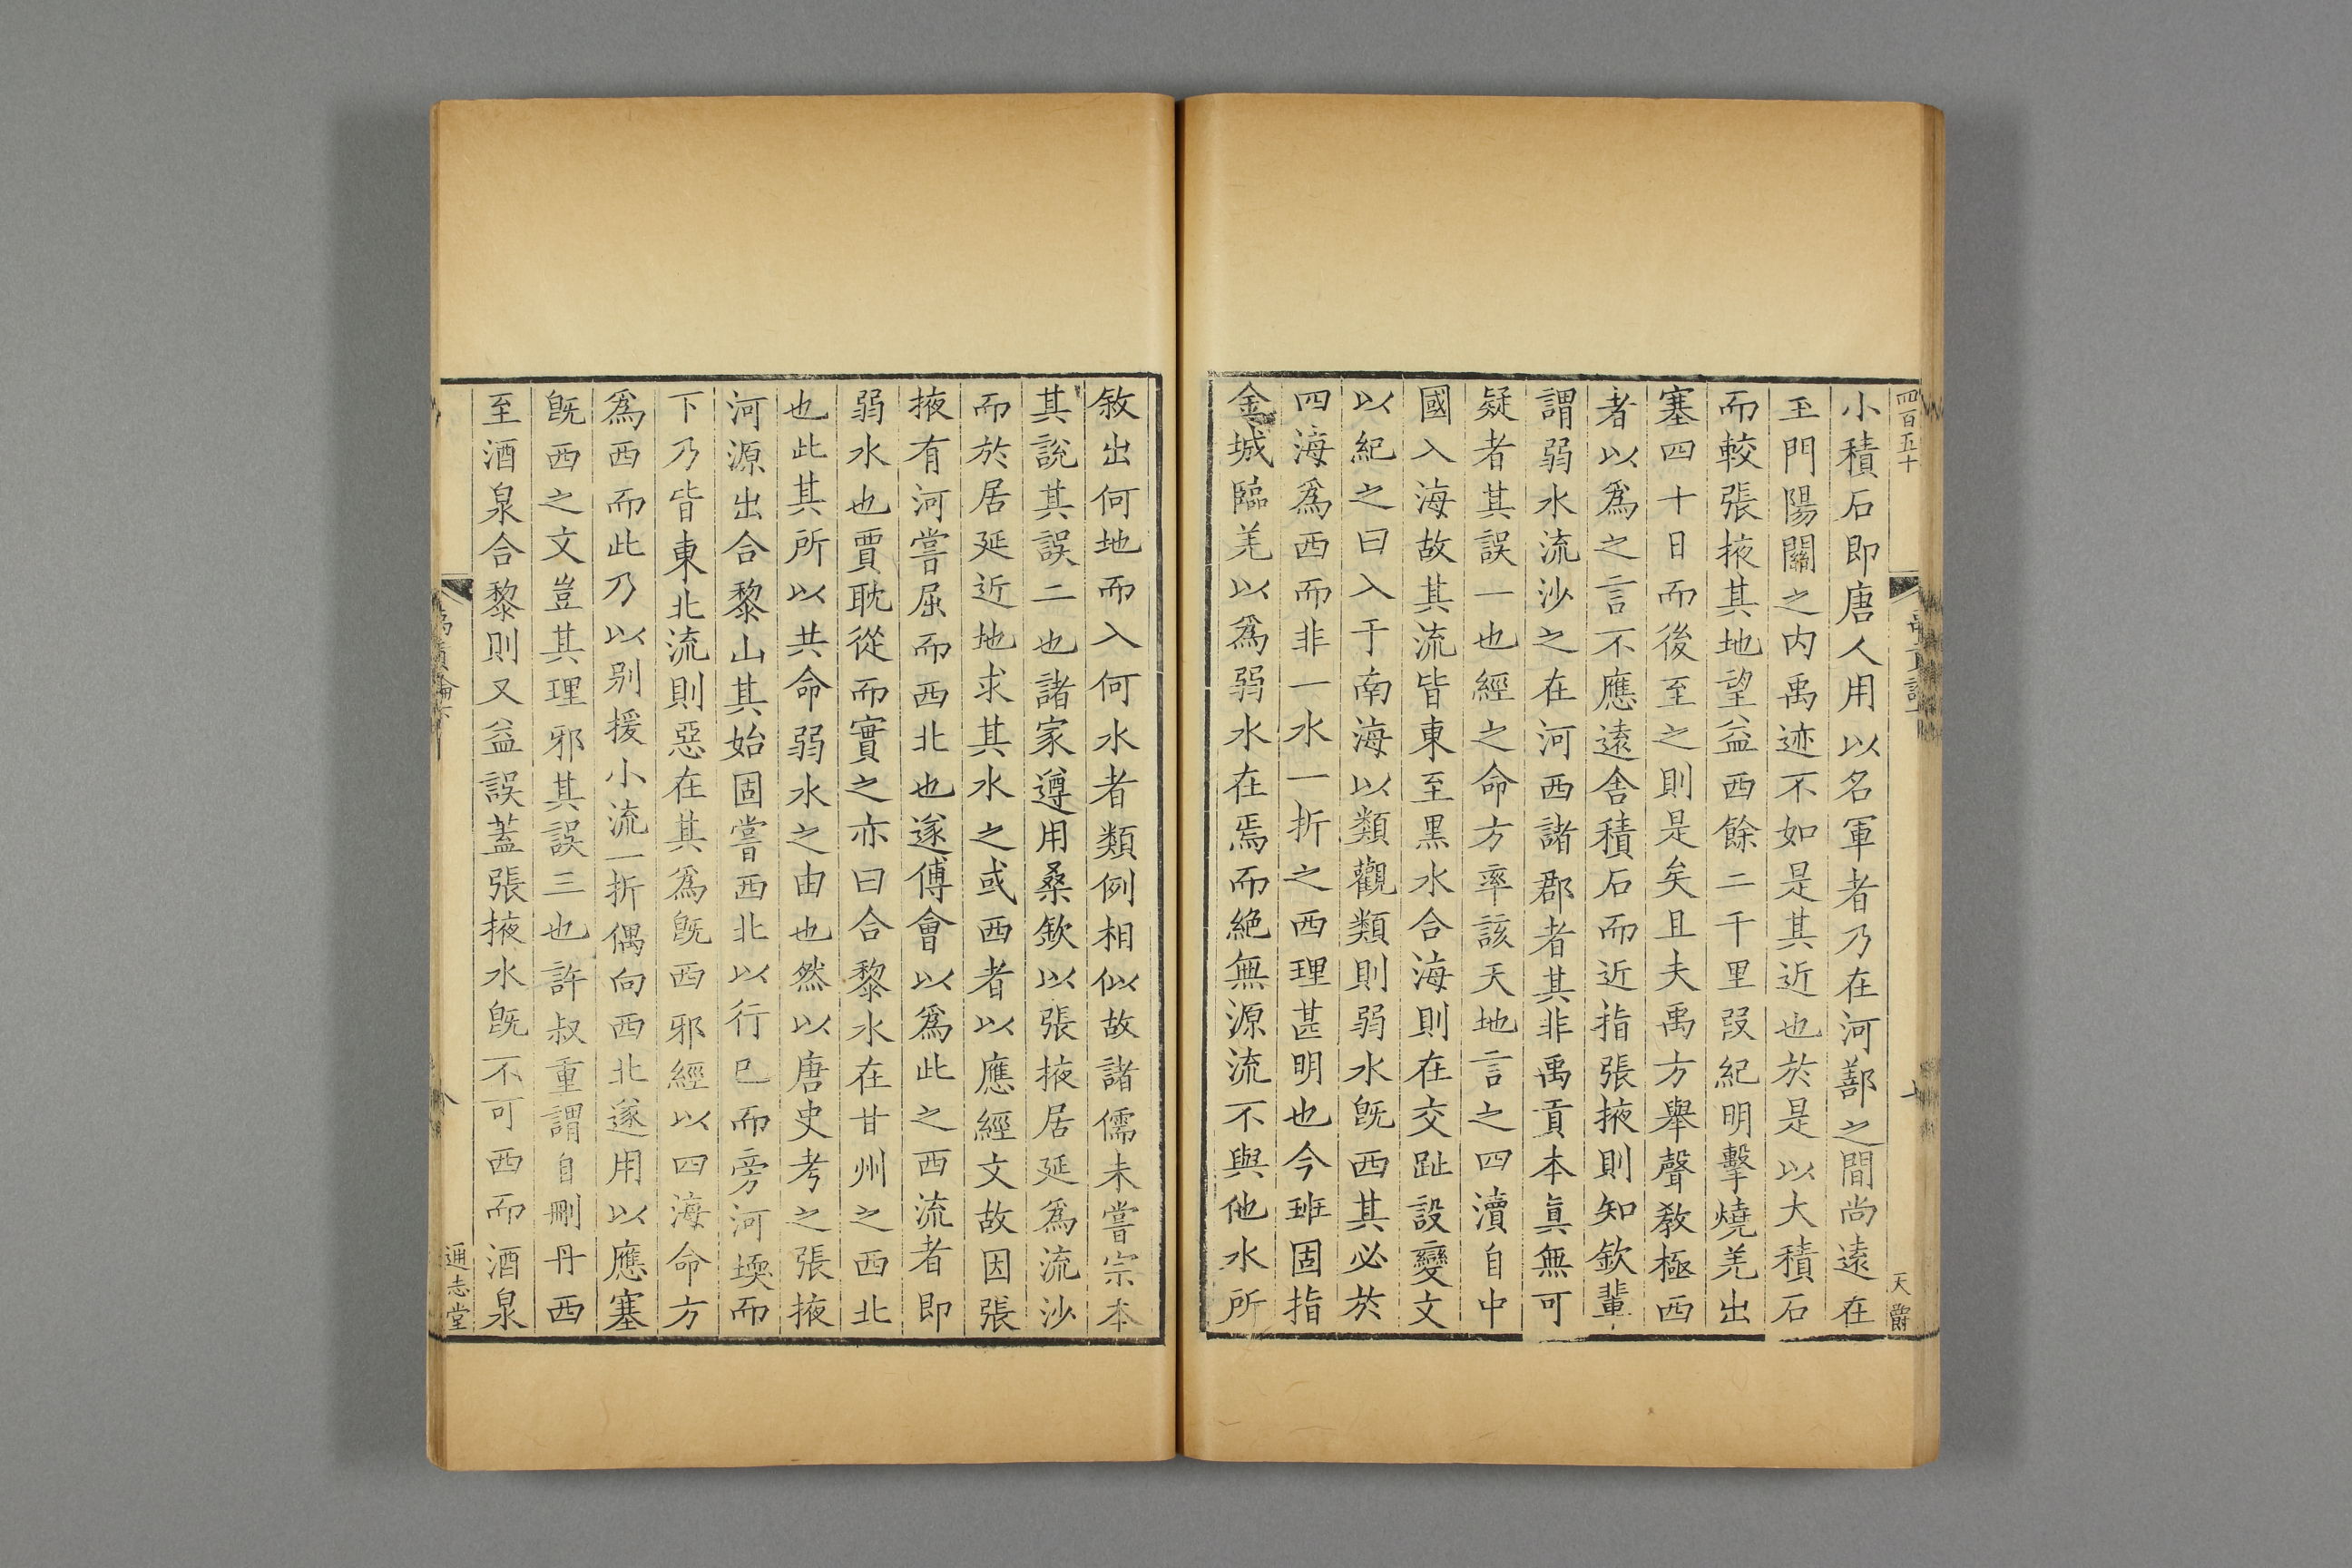 四百五十
小積石即唐人用以名軍者乃在河鄯之間尚遠在
玉門陽關之内禹迹不如是其近也於是以大積石
而較張掖其地望益西餘二千里叚紀明擊燒羌出
塞四十日而後至之則是矣且夫禹方舉聲敎極西
者以爲之言不應遠舍積石而近指張掖則知欽輩
謂弱水流沙之在河西諸郡者其非禹貢本眞無可
疑者其誤一也經之命方率該天地言之四瀆自中
國入海故其流皆東至黑水合海則在交趾設變文
以紀之曰入于南海以類觀類則弱水旣西其必於
四海爲西而非一水一折之西理甚明也今班固指
金城臨羌以爲弱水在焉而絶無源流不與他水所
天爵
敘出何地而入何水者類例相似故諸儒未嘗宗本
其說其誤二也諸家遵用桑欽以張掖居延爲流沙
而於居延近地求其水之或西者以應經文故因張
掖有河嘗屈而西北也遂傅會以爲此之西流者即
弱水也賈耽從而實之亦曰合黎水在甘州之西北
也此其所以共命弱水之由也然以唐史考之張掖
河源出合黎山其始固嘗西北以行已而旁河堧而
下乃皆東北流則惡在其爲旣西邪經以四海命方
爲西而此乃以别援小流一折偶向西北遂用以應塞
旣西之文豈其理邪其誤三也許叔重謂自刪丹西
至酒泉合黎則又益誤蓋張掖水旣不可西而酒泉
禹貢論下
八
通志堂